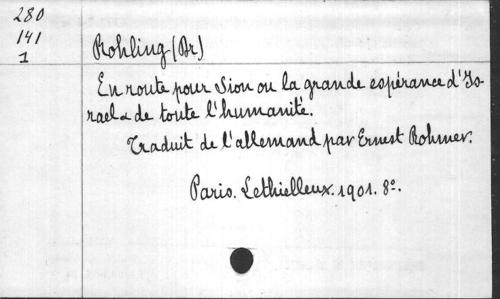 280
141
1
Rohling (Dr)
En route pour Sion ou la grande espérance d'Is-
rael & de toute l'humanité.
Traduit de l'allemand par Ernest Rohmer.
Paris. Lethielleux. 1901. 8º.